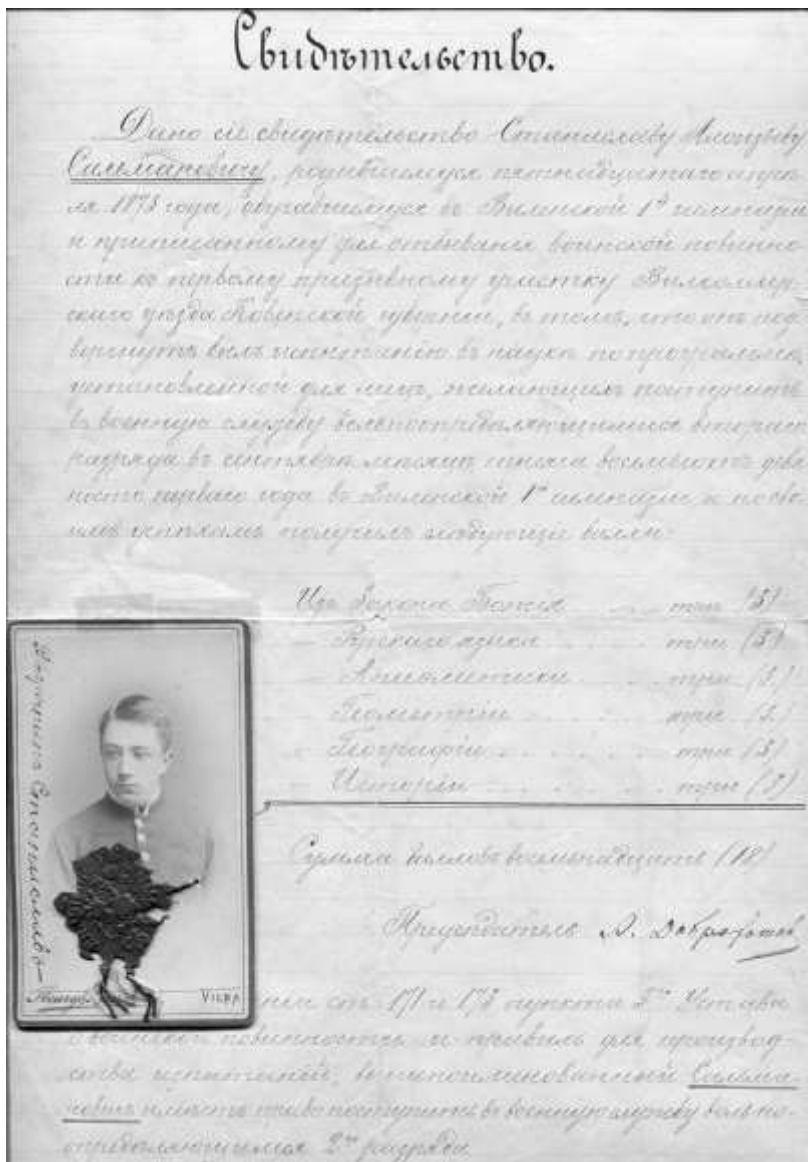 Свидѣтельство.
Дано сіе свидѣтельство Станиславу
родившемуся пятнадцатаго апрѣ-
ля 1873 года, обучавшемуся въ Виленской 1й гимназіи
и приписанному для отбыванія воинской повинно-
сти къ первому призывному участку Вилкомір-
скаго уѣзда Ковенской губерніи, въ томъ, что онъ под-
вергнутъ былъ испытанію въ
установленной для лицъ, желающихъ поступить
въ военную службу вольноопредѣляющимися втораго
разряда въ сентябрѣ мѣсяцѣ тысяча восемьсотъ девя-
носто перваго года въ Виленской 1й гимназіи и по сво-
имъ успѣхамъ получилъ слѣдующіе баллы:
Изъ Закона Божія три (3)
— Русскаго языка три (3)
— Ариѳметики три (3)
— Геометріи три (3)
— Географіи три (3)
— Исторіи три (3)
Сумма балловъ восемнадцать (18)
Предсѣдатель А.
Станиславъ
VILNA
ст. 171 и 173 пункта Устава
о воинской повинности и правилъ для производ-
ства испытаній, вышепоименованный Сильма-
новичъ имѣетъ право поступить въ военную службу вольно-
опредѣляющимся 2го разряда.